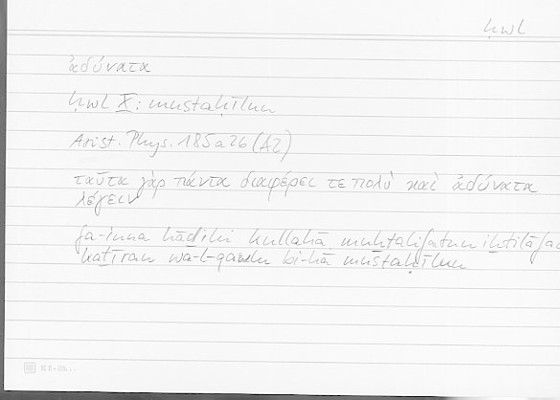 ḥwl
ἀδύνατα
ḥwl X : mustaḥīlun
Arist. Phys. 185a26 (A2)
ταῦτα γὰρ πάντα διαφέρει τε πολὺ καὶ ἀδύνατα
λέγειν
fa-inna hāḏihi kullahā muḫtalifatun iḫtilāfan
kaṯīran wa-l-qawlu bi-hā mustaḥīlun